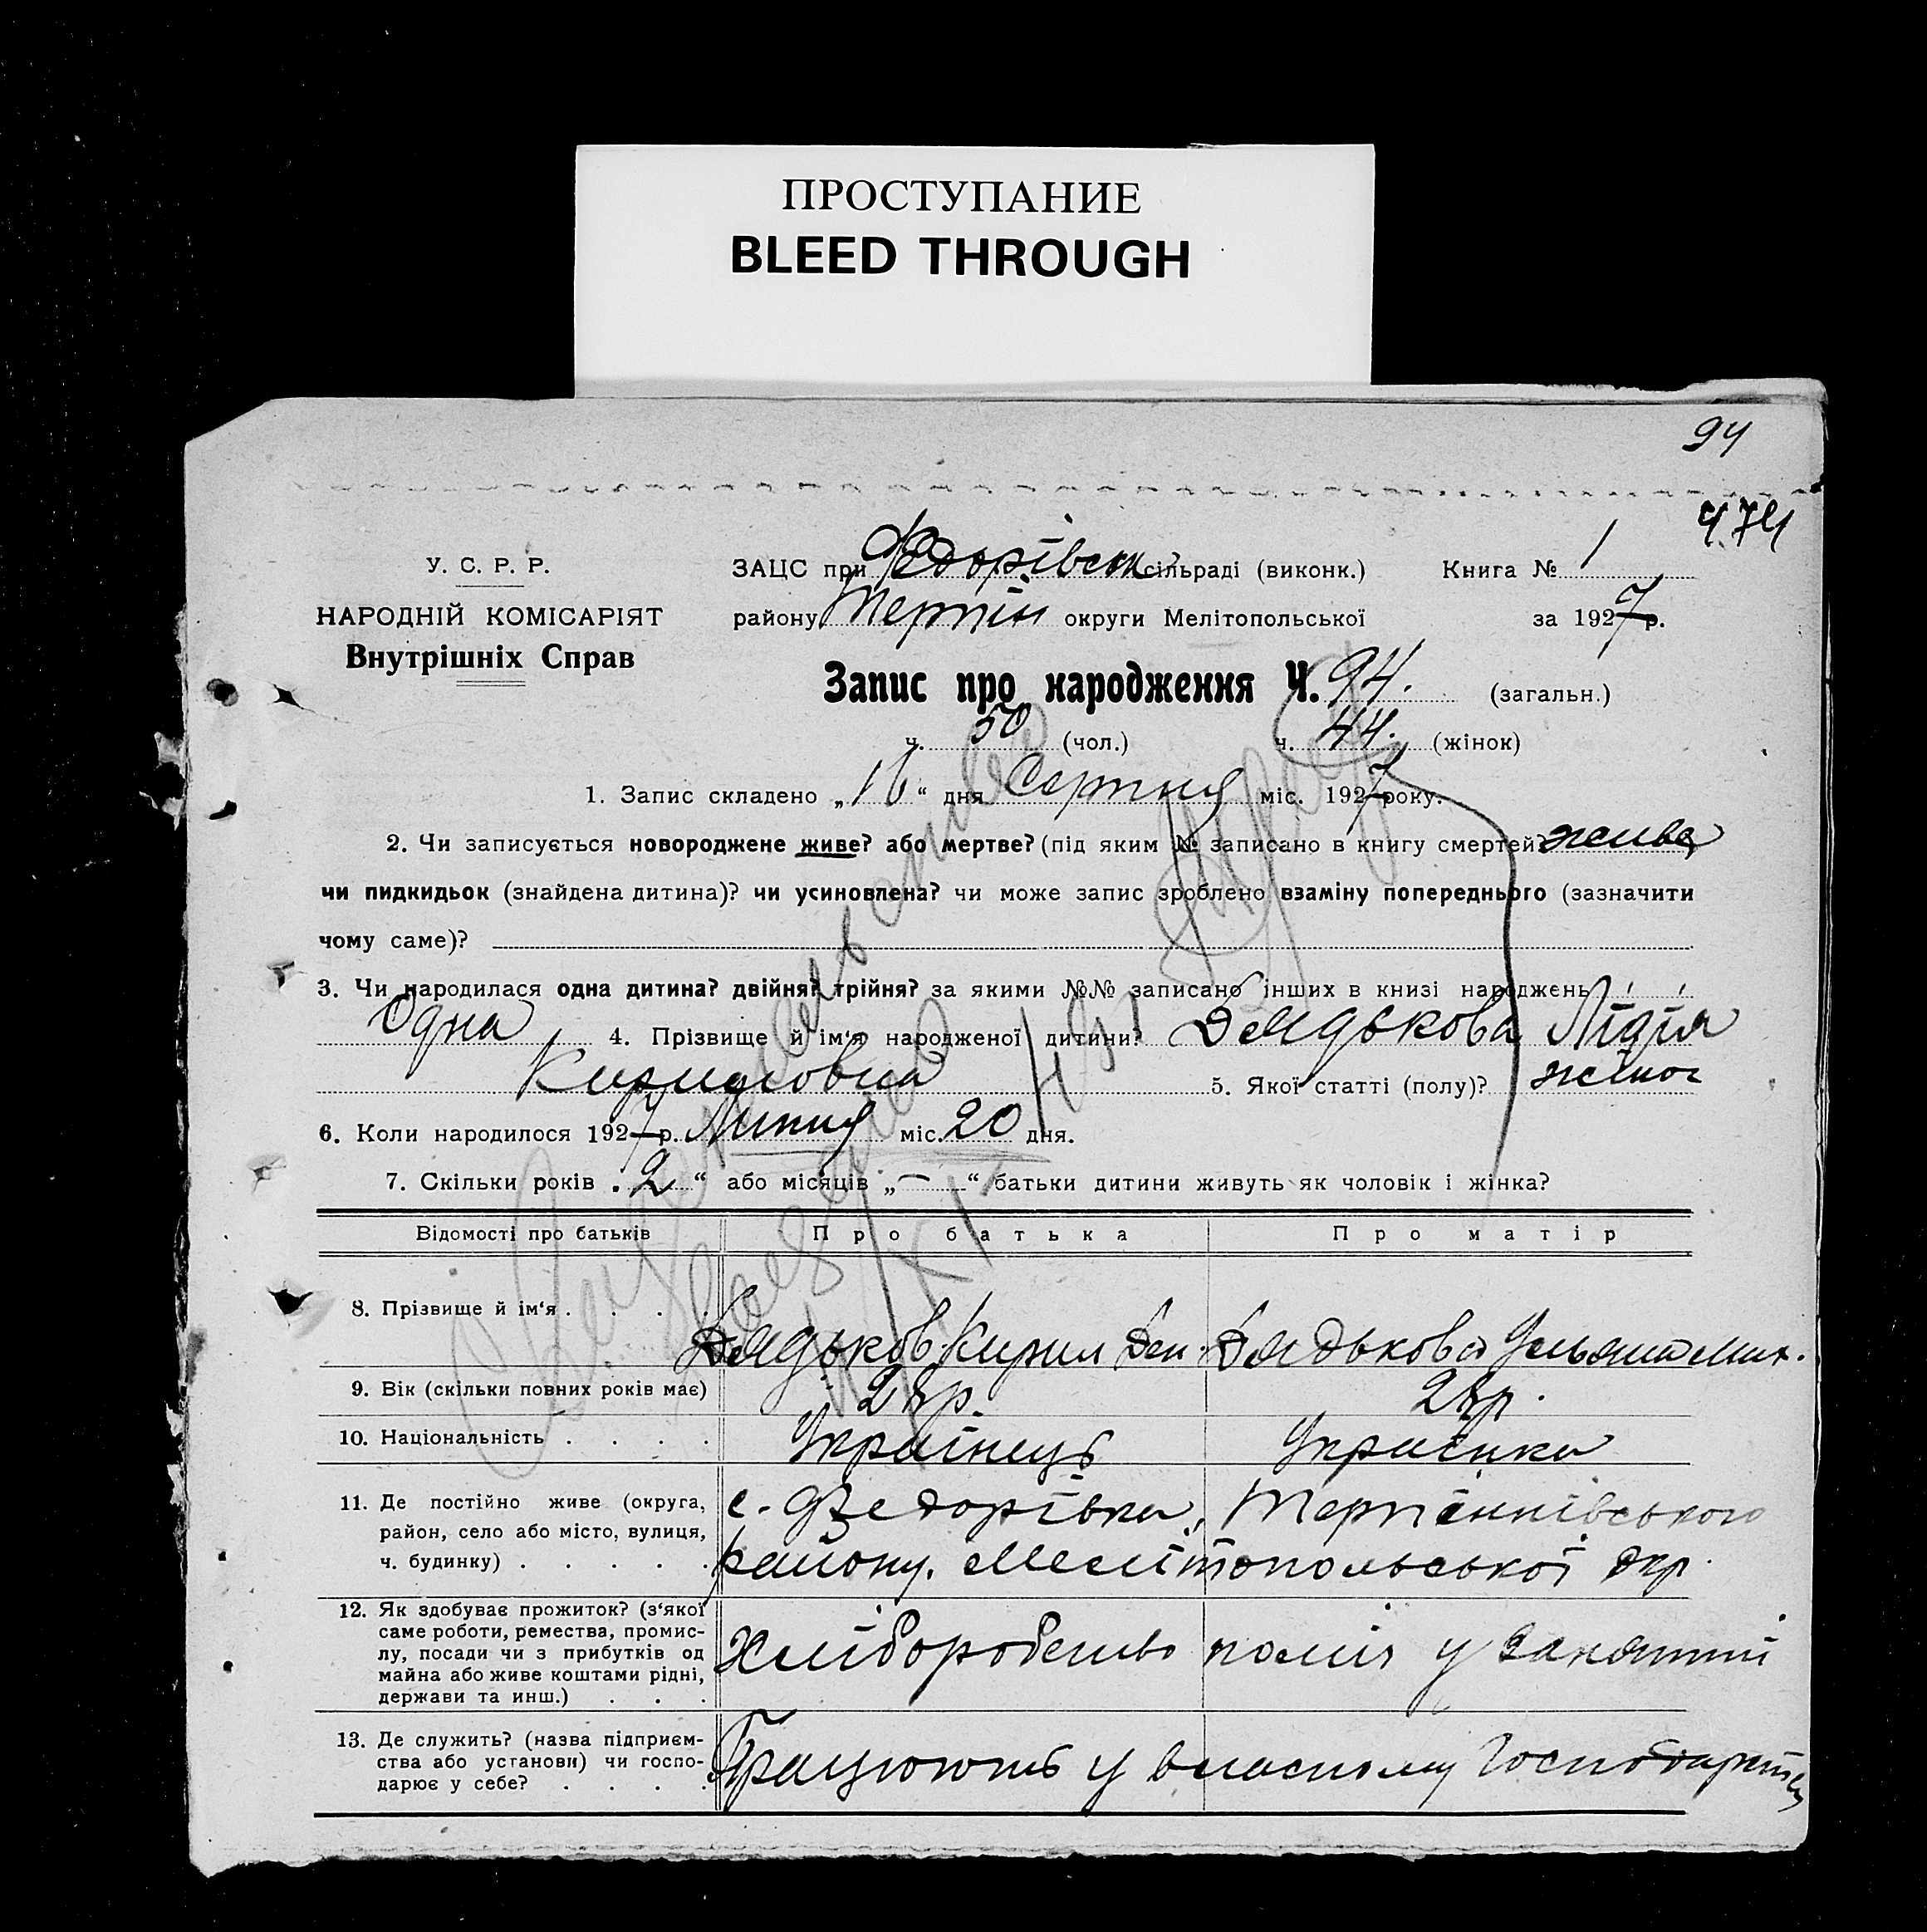 ПРОСТУПАНИЕ
BLEED THROUGH
94
474
У. С. Р. Р.
НАРОДНІЙ КОМІСАРІЯТ
Внутрішніх Справ
ЗАЦС при Федорівськ. сільраді (виконк.) Книга № 1
району Терпін округи Мелітопольської за 1927 р.
Запис про народження Ч. 94. (загальн.)
ч. 50 (чол.) ч. 44. (жінок)
1. Запис складено „16“ дня Серпня міс. 1927 року.
2. Чи записується новороджене живе? або мертве? (під яким № записано в книгу смертей? жива
чи пидкидьок (знайдена дитина)? чи усиновлена? чи може запис зроблено взаміну попереднього (зазначити
чому саме)?
3. Чи народилася одна дитина? двійня? трійня? за якими №№ записано інших в книзі народжень
Одна 4. Прізвище й ім‘я народженої дитини? Дядькова Лідія
Кириловна 5. Якої статті (полу)? жіноч
6. Коли народилося 1927 р. Липня міс. 20 дня.
7. Скільки років „2“ або місяців „—“ батьки дитини живуть як чоловік і жінка?
Відомості про батьків Про батька Про матір
8. Прізвище й ім‘я . . . . Дядьков Кирил Дядькова Ульяна Мих.
9. Вік (скільки повних років має)
10. Національність . . . . Українець Українка
11. Де постійно живе (округа,
район, село або місто, вулиця,
ч. будинку) . . . . .
с. Федорівка, Терпінніївського
району. Мелітопольської окр.
12. Як здобуває прожиток? (з‘якої
саме роботи, ремества, промис-
лу, посади чи з прибутків од
майна або живе коштами рідні,
держави та инш.) . . .
Хліборобство поміч у занятті
13. Де служить? (назва підприєм-
ства або установи) чи госпо-
дарює у себе? . . . .
Працюють у власному господарстві